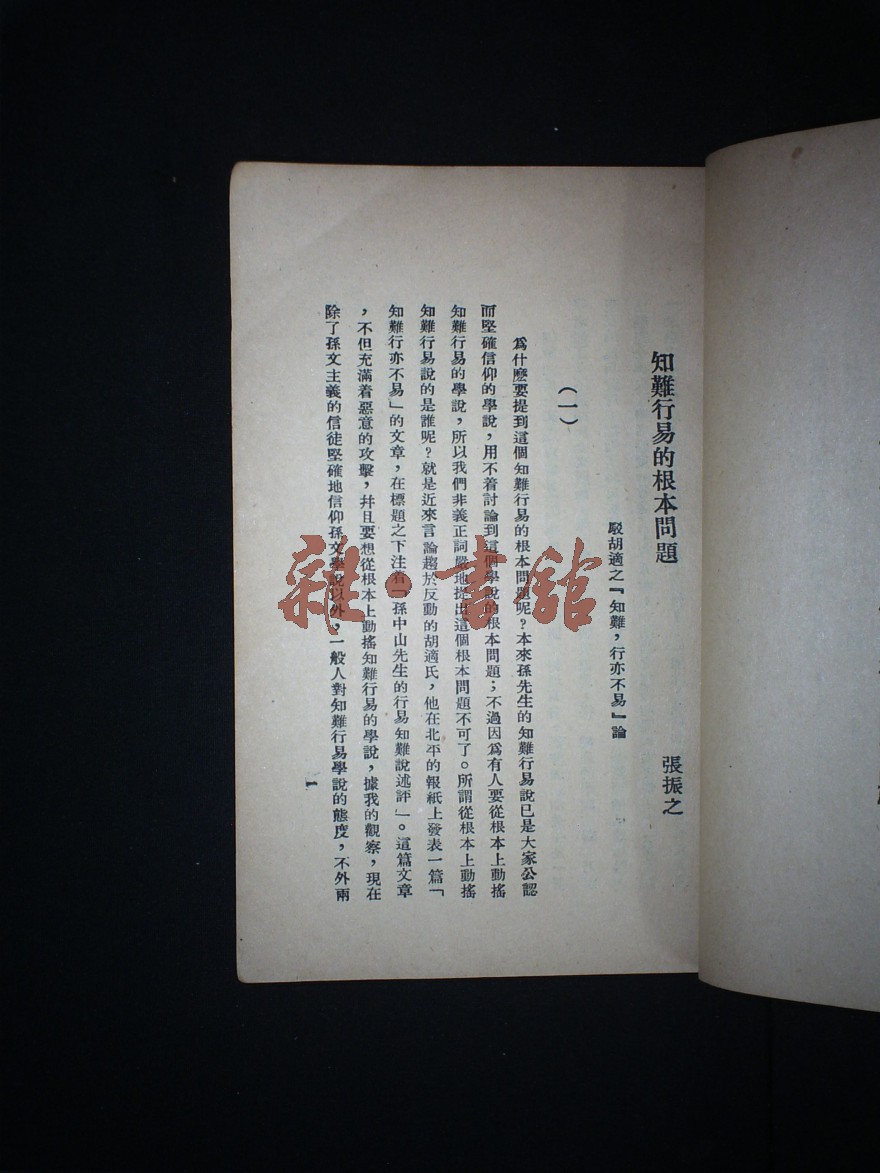 知難行易的根本問題
駁胡適之『知難，行亦不易』論
張振之
（一）
爲什麽要提到這個知難行易的根本問題呢？本來孫先生的知難行易說已是大家公認
而堅確信仰的學說，用不着討論到這個學說的根本問題；不過因爲有人要從根本上動搖
知難行易的學說，所以我們非義正詞嚴地提出這個根本問題不可了。所謂從根本上動搖
知難行易說的是誰呢？就是近來言論趨於反動的胡適氏，他在北平的報紙上發表一篇「
知難行亦不易」的文章，在標題之下注着「孫中山先生的行易知難說述評」。這篇文章
，不但充滿着惡意的攻擊，幷且要想從根本上動搖知難行易的學說，據我的觀察，現在
除了孫文主義的信徒堅確地信仰孫文學說以外，一般人對知難行易學說的態度，不外兩
一
雜·書館